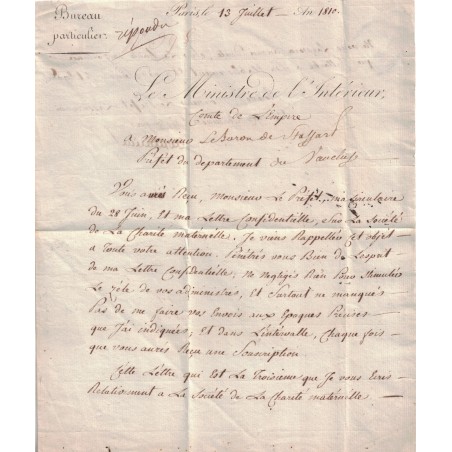 Bureau
particulier.
répondu
Paris, le 13 Juillet An 1810.
Le Ministre de l'Intérieur,
Comte de L'Empire
a Monsieur Le Baron de Stassart
Préfet du département de Vaucluse
Vous avés Reçu, monsieur Le Préfet, ma Circulaire
du 28 Juin, Et ma Lettre Confidentielle, sur La Société
de La Charité maternelle. Je viens Rappeller cet objet
a Toute votre attention. Pénétrés vous Bien de L'esprit
de ma Lettre Confidentielle, ne negligés Rien Pour Stimuler
Le zèle de vos administrés, Et Surtout ne manqués
Pas de me faire vos Envois aux Epoques Precises
que J'ai indiquées; Et dans L'intervalle, Chaque fois
que vous aurés Reçu une Souscription.
Cette Lettre qui Est La Troisieme que Je vous Ecris
Relativement a La Société de La Charité maternelle